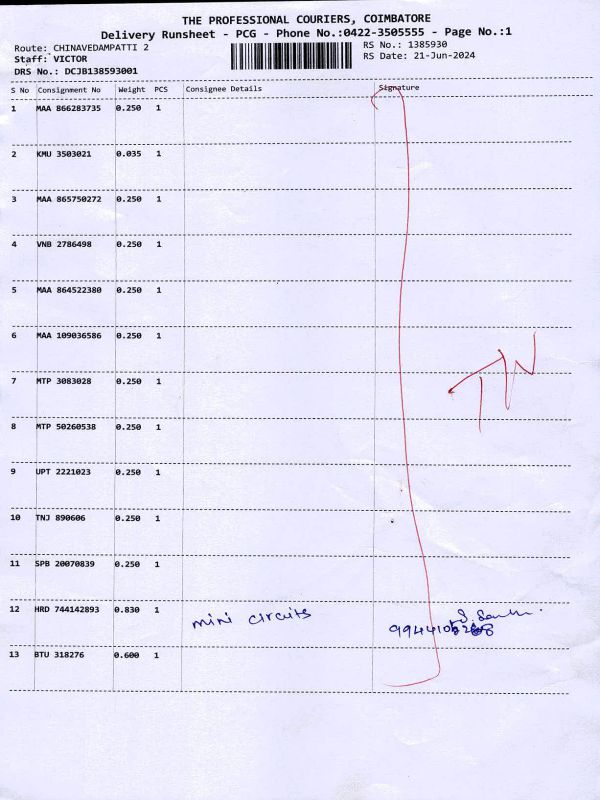 THE PROFESSIONAL COURIERS, COIMBATORE
Delivery Runsheet - PCG - Phone No.:0422-3505555 - Page No.:1
Route: CHINAVEDAMPATTI 2
RS No.: 1385930
Staff: VICTOR
RS Date: 21-Jun-2024
DRS No.: DCJB138593001
S No Consignment No Weight PCS Consignee Details Signature
1 MAA 866283735 0.250 1
2 KMU 3503021 0.035 1
3 MAA 865750272 0.250 1
4 VNB 2786498 0.250 1
5 MAA 864522380 0.250 1
6 MAA 109036586 0.250 1
7 MTP 3083028 0.250 1
8 MTP 50260538 0.250 1
9 UPT 2221023 0.250 1
10 TNJ 890606 0.250 1
11 SPB 20070839 0.250 1
12 HRD 744142893 0.830 1 mini circuits
13 BTU 318276 0.600 1